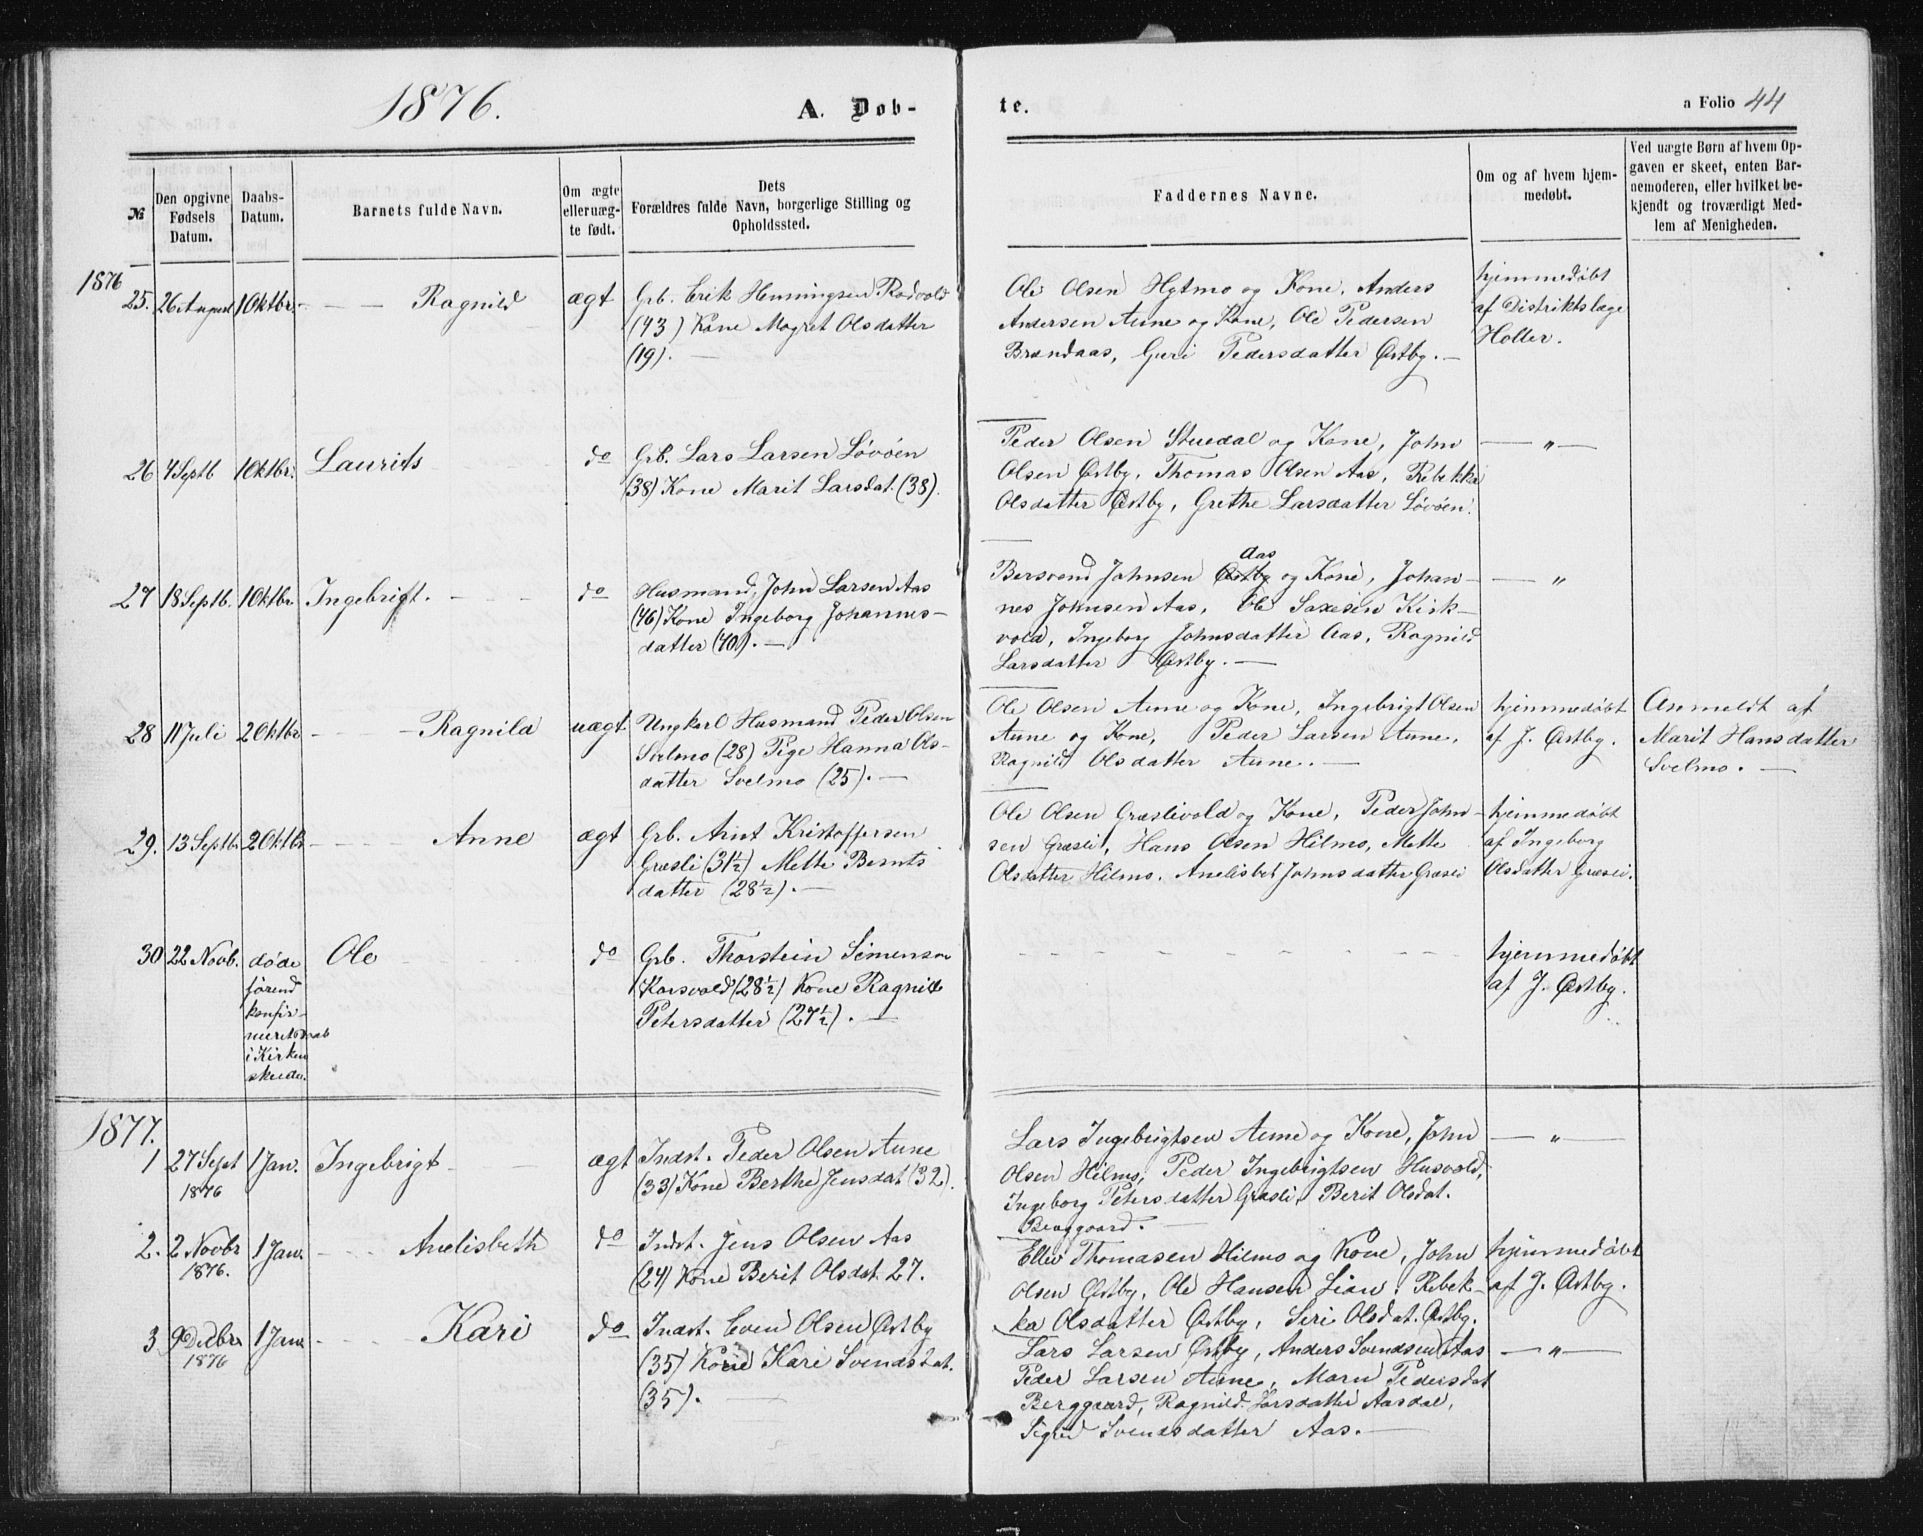 1876.
A. Døb-
te.
a Folio 44
№
Den opgivne
Fødsels
Datum.
Daabs-
Datum.
Barnets fulde Navn.
Om ægte
eller uæg-
te født.
Dets
Forældres fulde Navn, borgerlige Stilling og
Opholdssted.
Faddernes Navne.
Om og af hvem hjem-
medøbt.
Ved uægte Børn af hvem Op-
gaven er skeet, enten Bar-
nemoderen, eller hvilket be-
kjendt og troværdigt Med-
lem af Menigheden.
1876
25. 26 August 1 Oktbr. Ragnild ægt
Grb. Erik Henningsen Rødvold
(43) Kone Magret Olsdatter
(19).
Ole Olsen Hytmo og Kone, Anders
Andersen Aune og Kone, Ole Pedersen
Brændaas, Guri Pedersdatter Østby.
hjemmedøbt
af Distriktslæge
Holler.
26 4 Septb 1 Oktbr. Laurits do
Grb. Lars Larsen Løvøen
(38) Kone Marit Larsdat. (38).
Peder Olsen Stuedal og Kone, John
Olsen Østby, Thomas Olsen Aas, Rebekka
Olsdatter Østby, Grethe Larsdatter Løvøen.
— " —
27 18 Septb. 1 Oktbr Ingebrigt. do
Husmand, John Larsen Aas
(46) Kone Ingeborg Johannes-
datter (40).
Aas
Bersvend Johnsen Østby og Kone, Johan-
nes Johnsen Aas, Ole Saxesen Kirk-
vold, Ingeborg Johnsdatter Aas, Ragnild
Larsdatter Østby.
— "
28 11 Juli 2 Oktbr Ragnild uægt
Ungkarl Husmand Peder Olsen
Svelmo (28) Pige Hanna Ols-
datter Svelmo (25).
Ole Olsen Aune og Kone, Ingebrigt Olsen
Aune og Kone, Peder Larsen Aune,
Ragnild Olsdatter Aune.
hjemmedøbt
af J. Østby.
Anmeldt af
Marit Hansdatter
Svelmo.
29. 13 Septbr 2 Oktbr Anne ægt
Grb. Arnt Kristoffersen
Græsli (31½) Mette Bernts
datter (28½).
Ole Olsen Græslivold og Kone, Peder John-
sen Græsli, Hans Olsen Hilmo, Mette
Olsdatter Hilmo. Anelisbet Johnsdatter Græsli
hjemmedøbt
af Ingeborg
Olsdatter Græsli.
30 22 Novb. døde Ole do
førend
konfir-
meret Daab
i Kirken
skede.
Grb. Thorstein Simensen
Korsvold (28½) Kone Ragnild
Petersdatter (27½).
hjemmedøbt
af J. Østby.
1877.
1 27 Sept 1 Jan. Ingebrigt ægt
1876
Indst. Peder Olsen Aune
(33) Kone Berthe Jensdat (32).
Lars Ingebrigtsen Aune og Kone, John
Olsen Hilmo, Peder Ingebrigtsen Husvold,
Ingeborg Petersdatter Græsli, Berit Olsdat.
Berggaard.
— " —
2. 2 Novbr 1 Jan. Anelisbeth do
1876.
Indst. Jens Olsen Aas
(24) Kone Berit Olsdat. 27.
Ellev Thomasen Hilmo og Kone, John
Olsen Østby, Ole Hansen Lian, Rebek-
ka Olsdatter Østby, Siri Olsdat. Østby.
hjemmedøbt
af J. Østby.
3 9 Decbr 1 Jan Kari do
1876
Indst. Even Olsen Østby
(35) Kone Kari Svendsdat.
(35).
Lars Larsen Østby, Anders Svendsen Aas
Peder Larsen Aune, Marit Pedersdat
Berggaard, Ragnild Larsdatter Aasdal,
Sigrid Svendsdatter Aas.
— " —